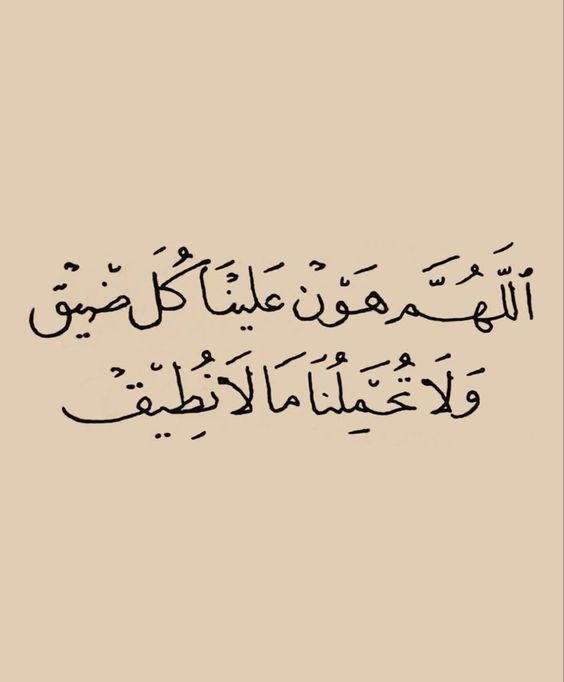 ٱللَّهُمَّ هَوّنْ عَلينَا كُلَ ضْيقْ
وَلَا تُحَمِلُنَا مَا لَا نُطِيقْ